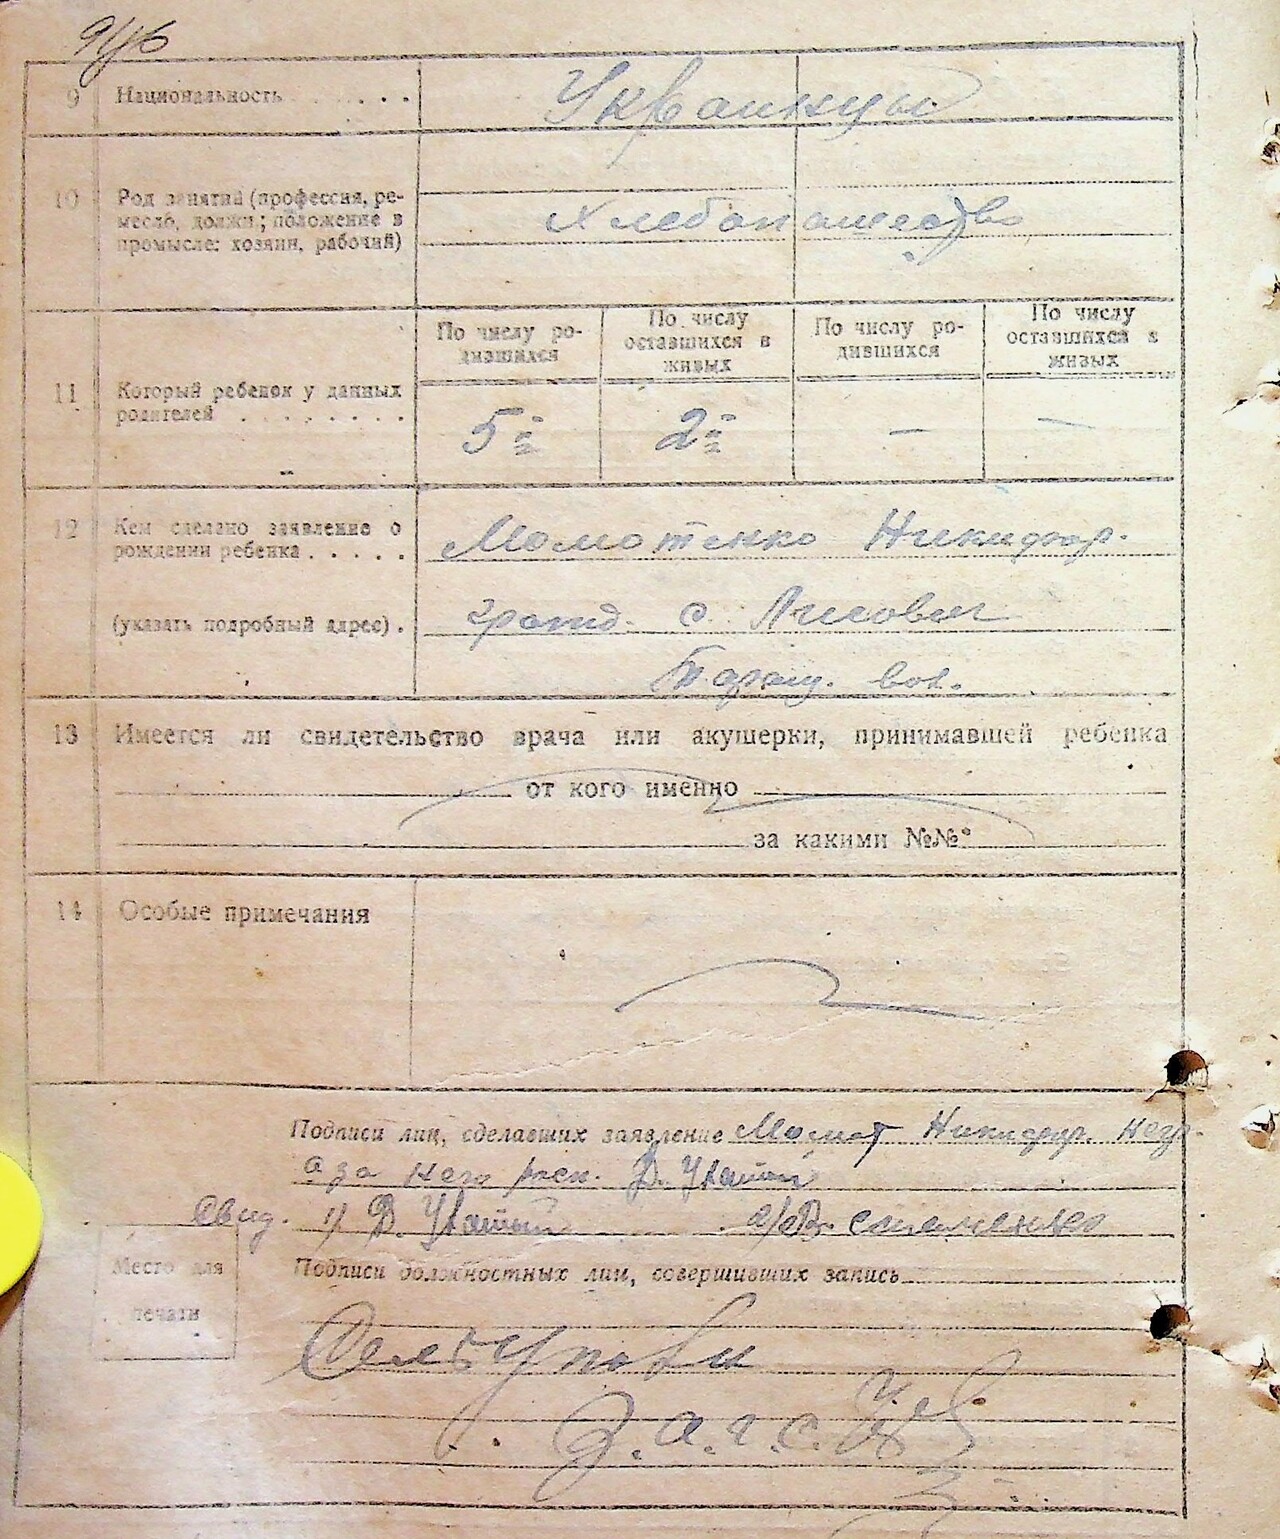 9 Национальность . . . . . . Украинцы
10 Род занятий (профессия, ре-
месло, должн; положение в
промысле: хозяин, рабочий)
Хлебопашество
По числу ро-
дившихся
По числу
оставшихся в
живых
По числу ро-
дившихся
По числу
оставшихся в
живых
11 Который ребенок у данных
родителей . . . . . . .
5й 2й — —
12 Кем сделано заявление о
рождении ребенка . . . . .
Момотенко Никифор.
(указать подробный адрес) .
гражд. с.
вол.
13 Имеется ли свидетельство врача или акушерки, принимавшей ребенка
от кого именно
за какими №№
14 Особые примечания
Подписи лиц, сделавших заявление Момот Никифор. негр.
а за него расп.
Свид. 1/ 2/
Место для
печати
Подписи должностных лиц, совершивших запись